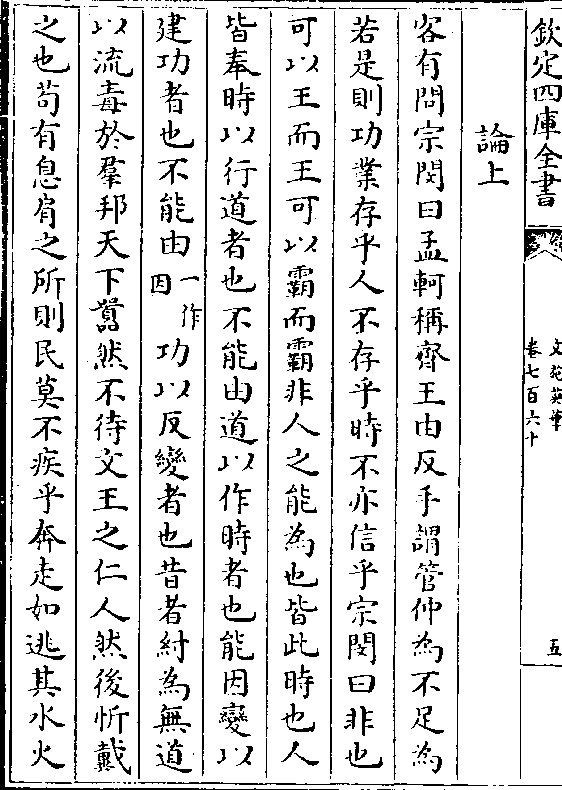 欽定四庫全書
文苑英華
卷七百六十
五
論上
客有問宗閔曰孟軻稱齊王由反手謂管仲為不足為
若是則功業存乎人不存乎時不亦信乎宗閔曰非也
可以王而王可以霸而霸非人之能為也皆此時也人
皆奉時以行道者也不能由道以作時者也能因變以
建功者也不能由一作因功以反變者也昔者紂為無道
以流毒於羣邦天下囂然不待文王之仁人然後忻戴
之也茍有息肩之所則民莫不疾乎奔走如逃其水火